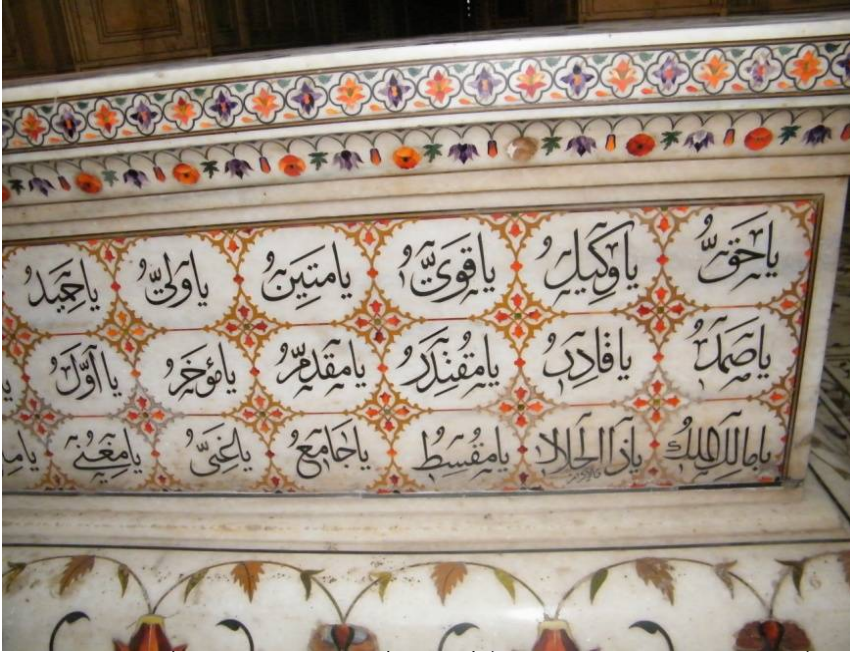 يا حق يا وكيل يا قوي يا متين يا ولي يا حميد
يا صمد يا قادر يا مقتدر يا مقدم يا مؤخر يا اول
يا مالك الملك يا ذا الجلال يا مقسط يا جامع يا غني يا مغني